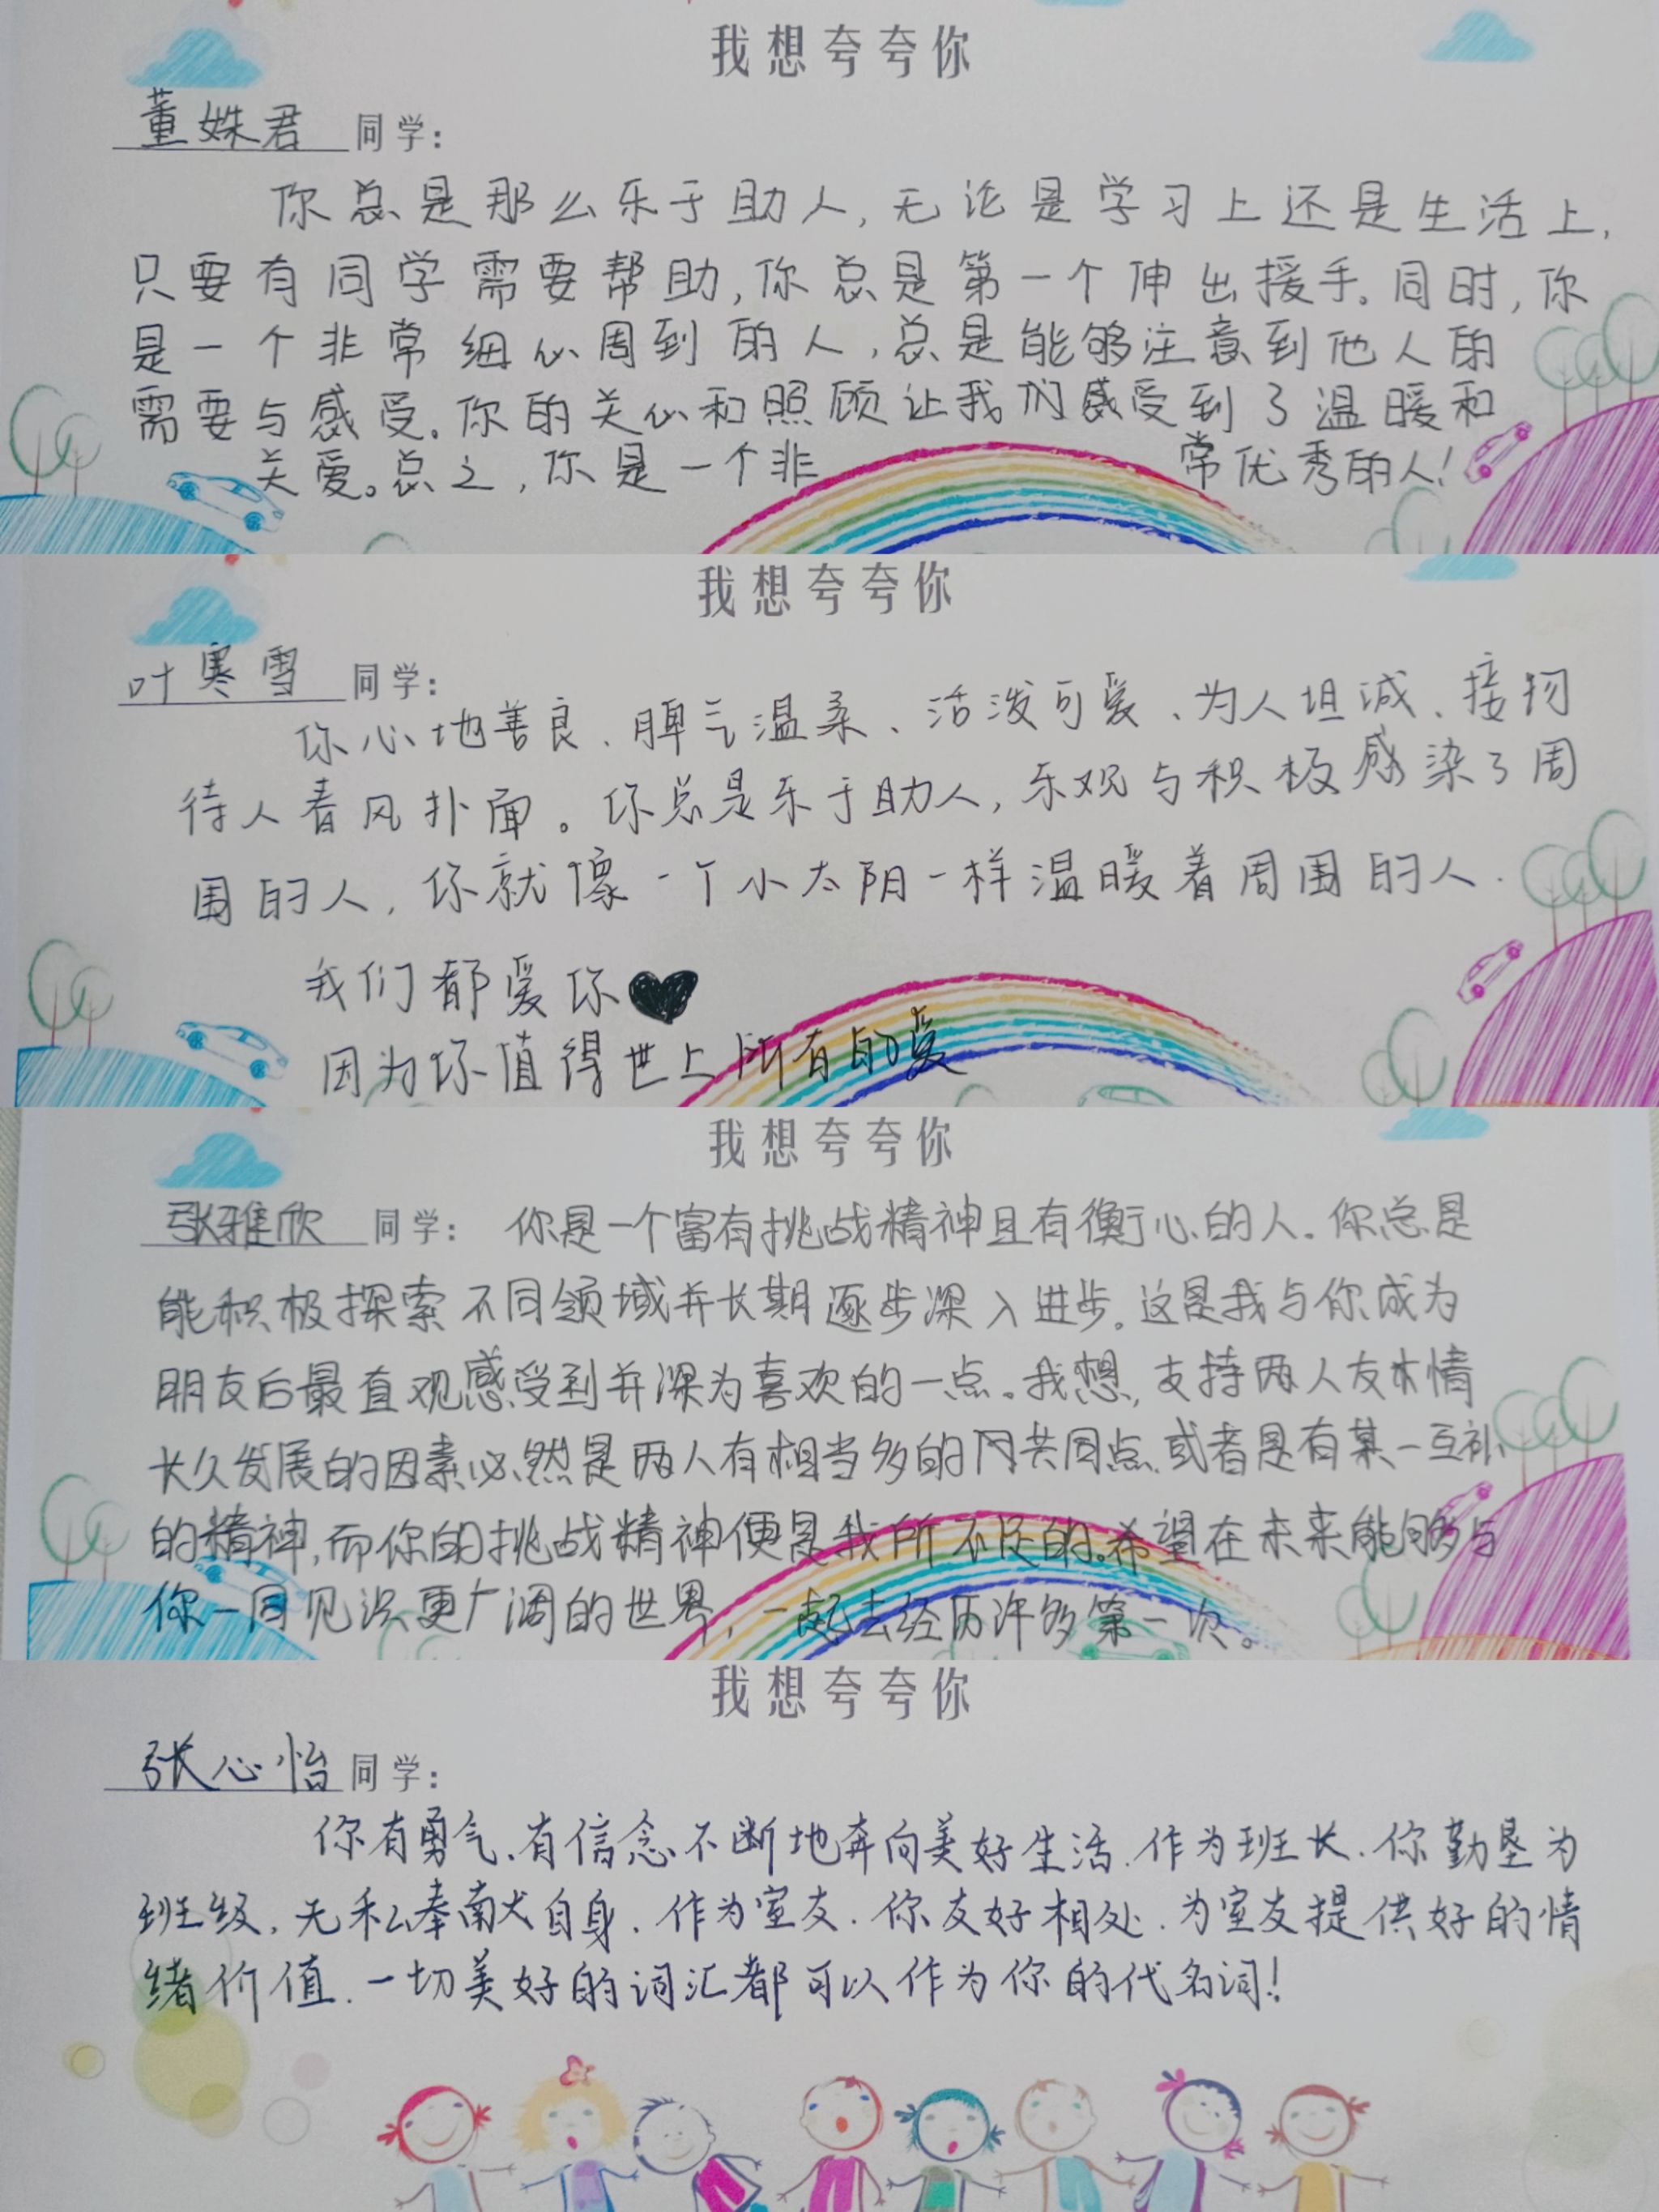 我想夸夸你
董姝君 同学:
你总是那么乐于助人,无论是学习上还是生活上,
只要有同学需要帮助,你总是第一个伸出援手。同时,你
是一个非常细心周到的人,总是能够注意到他人的
需要与感受。你的关心和照顾让我们感受到了温暖和
关爱。总之,你是一个非常优秀的人!
我想夸夸你
叶寒雪 同学:
你心地善良、脾气温柔、活泼可爱、为人坦诚、接物
待人春风扑面。你总是乐于助人,乐观与积极感染了周
围的人,你就像一个小太阳一样温暖着周围的人.
我们都爱你
因为你值得世上所有的爱
我想夸夸你
张雅欣 同学: 你是一个富有挑战精神且有衡心的人。你总是
能积极探索不同领域并长期逐步深入进步。这是我与你成为
朋友后最直观感受到并深为喜欢的一点。我想,支持两人友情
长久发展的因素必然是两人有相当多的共同点.或者是有某一互补
的精神,而你的挑战精神便是我所不及的。希望在未来能够与
你一同见识更广阔的世界,一起去经历许多第一次。
我想夸夸你
张心怡 同学:
你有勇气.有信念不断地奔向美好生活.作为班长.你勤垦为
班级,无私奉献自身.作为室友.你友好相处.为室友提供好的情
绪价值.一切美好的词汇都可以作为你的代名词!